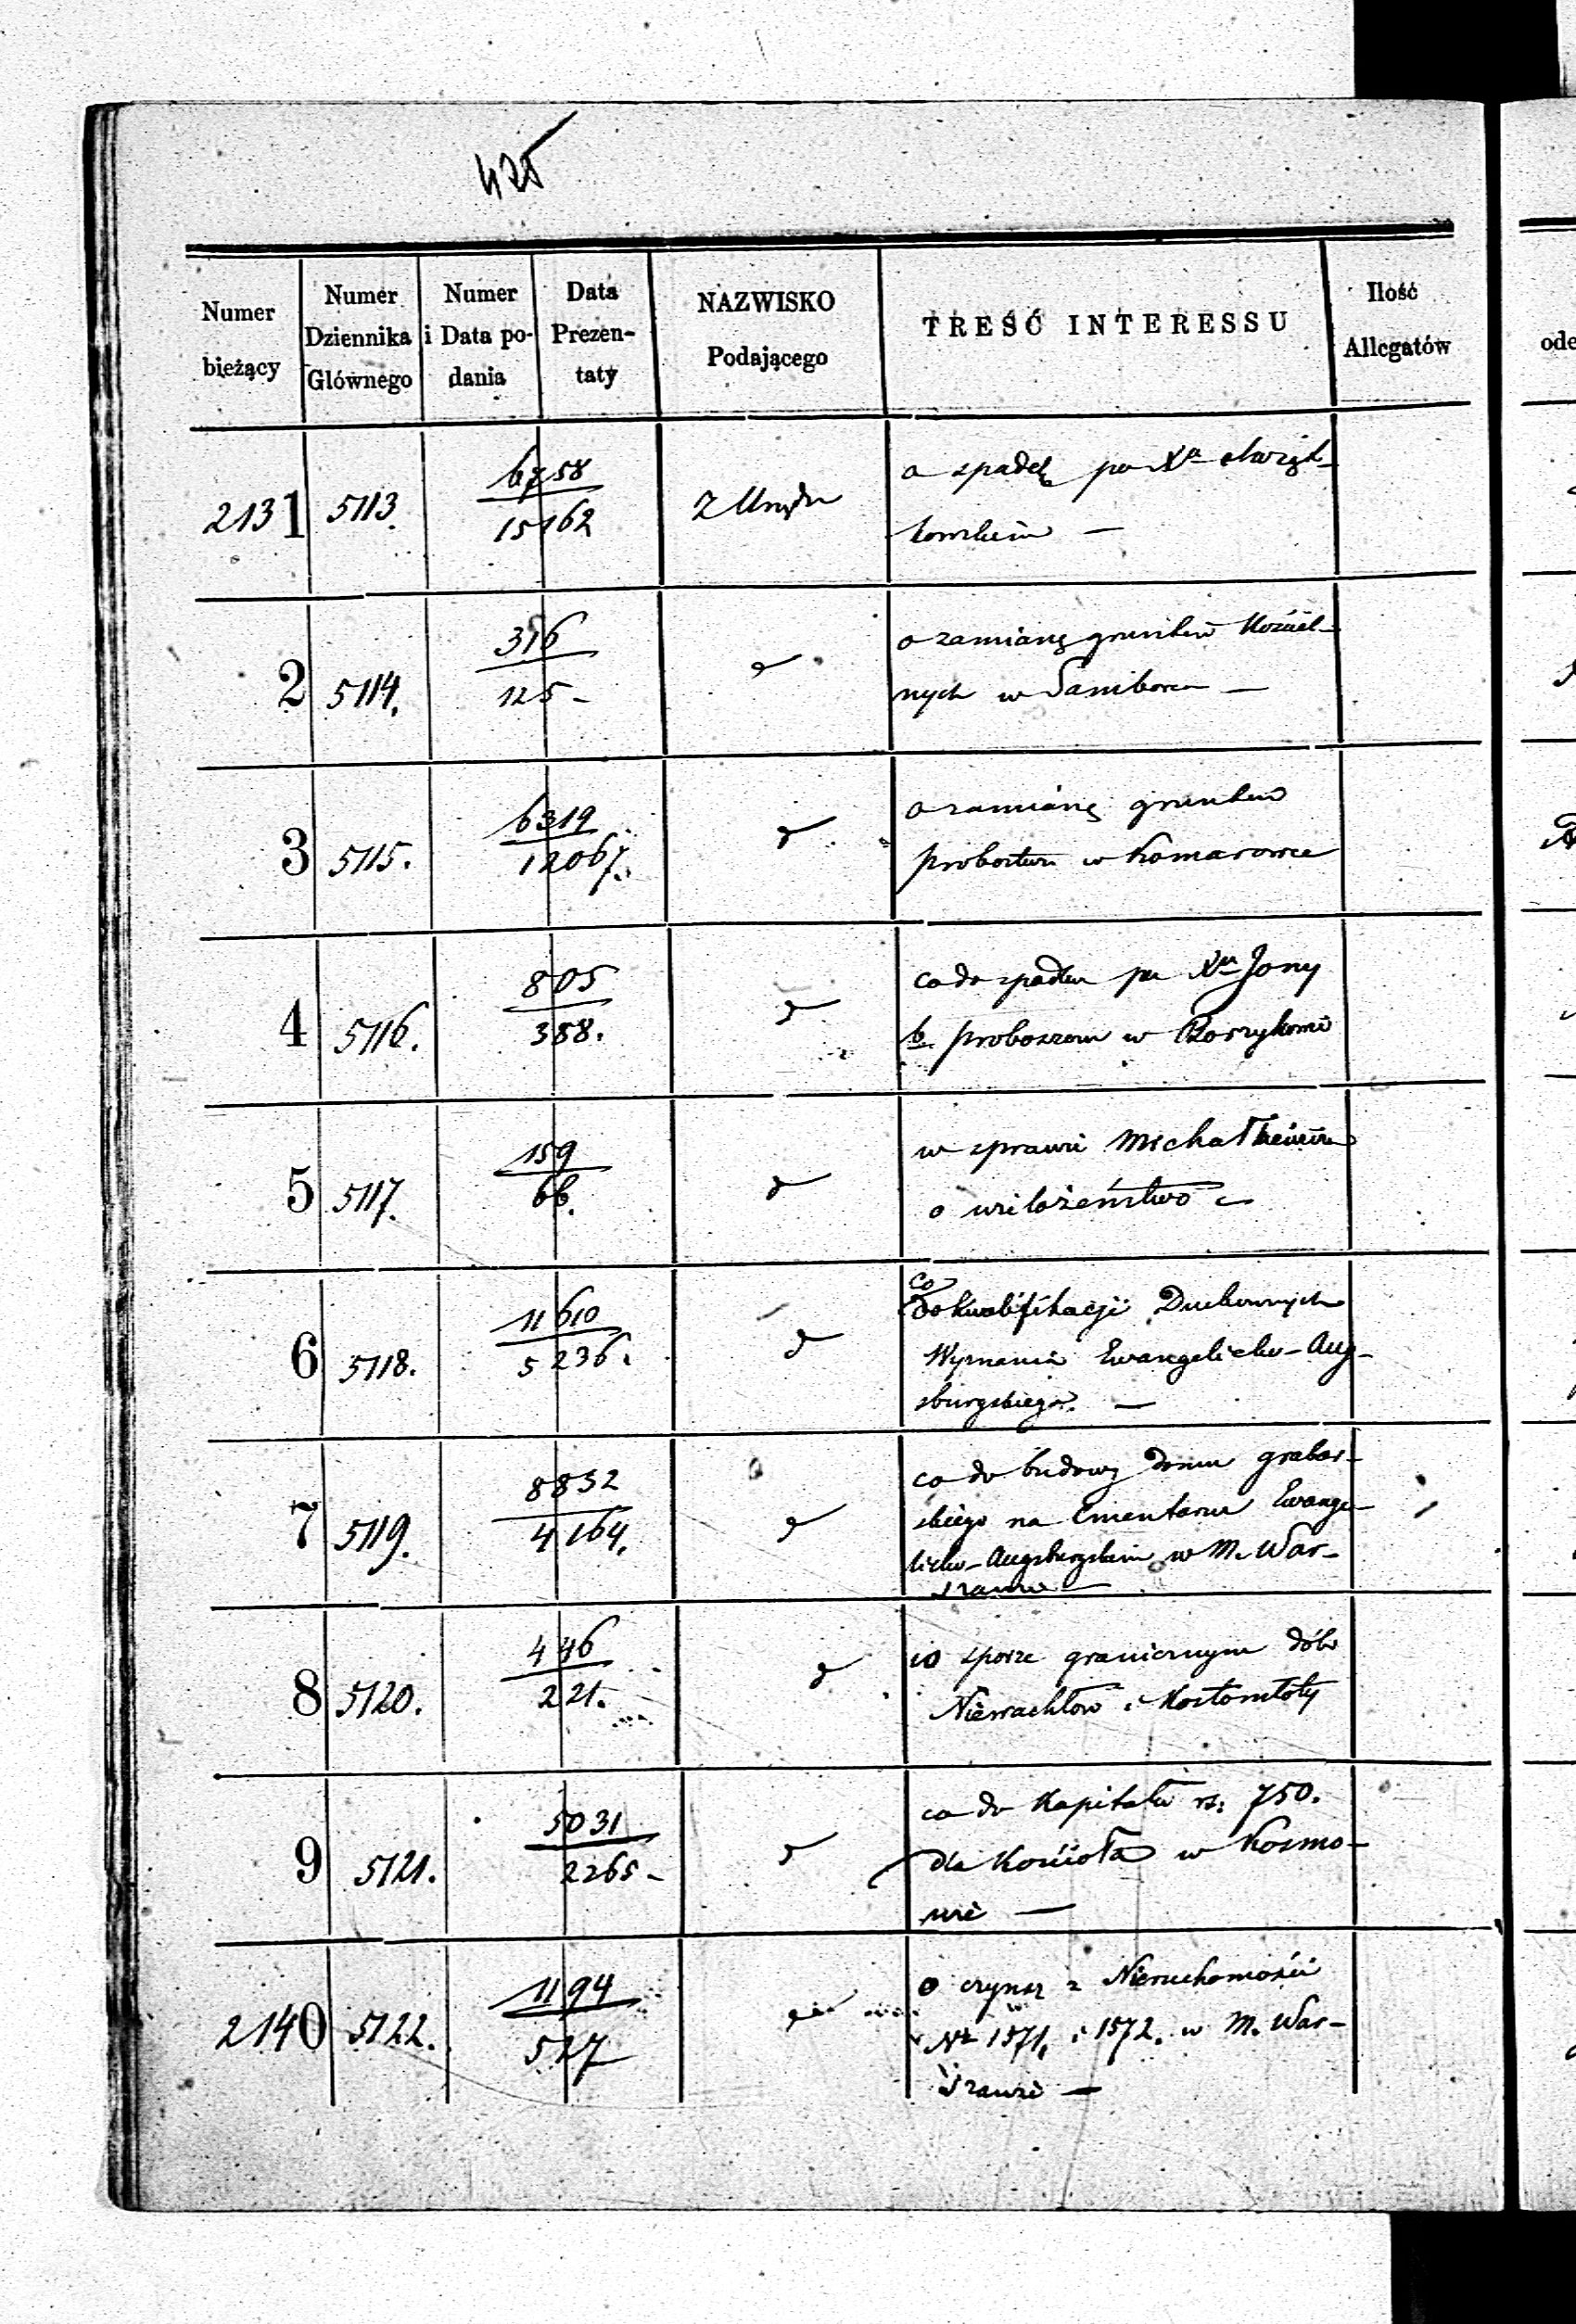 425
Numer bieżący
Numer Dziennika Głównego
Numer i Data podania
Data Prezentaty
NAZWISKO Podającego
TREŚĆ INTERESSU
Ilość Allegatów
2131 5113. 6758 / 15162 Z Urzędu o spadek po Xu
2 5114. 316 / 125 - d o zamianę gruntów Kościel-
nych w
3 5115. 6319 / 12067. d o zamianę gruntów
probostwa w Komarowie
4 5116. 805 / 388. d co do spadku po Xu Jony
b. proboszczu w
5 5117. 159 / 66. d w sprawie
o wielożeństwo
6 5118. 11610 / 5236. d co do kwalifikacji Duchownych
Wyznania Ewangelicko-Aug-
sburgskiego. —
7 5119. 8852 / 4164. d co do budowy domu grabar-
skiego na Cmentarzu Ewange-
licko-Augsburgskim w M. War-
szawie —
8 5120. 446 / 221. d w sporze granicznym dóbr
Niewachlów i Kostomłoty
9 5121. 5031 / 2265 - d co do Kapitału rs. 750.
dla Kościoła w Kosmo-
wie —
2140 5122. 1194 / 527 d o czynsz z Nieruchomości
Nr 1571. i 1572. w M. War-
szawie —
ode